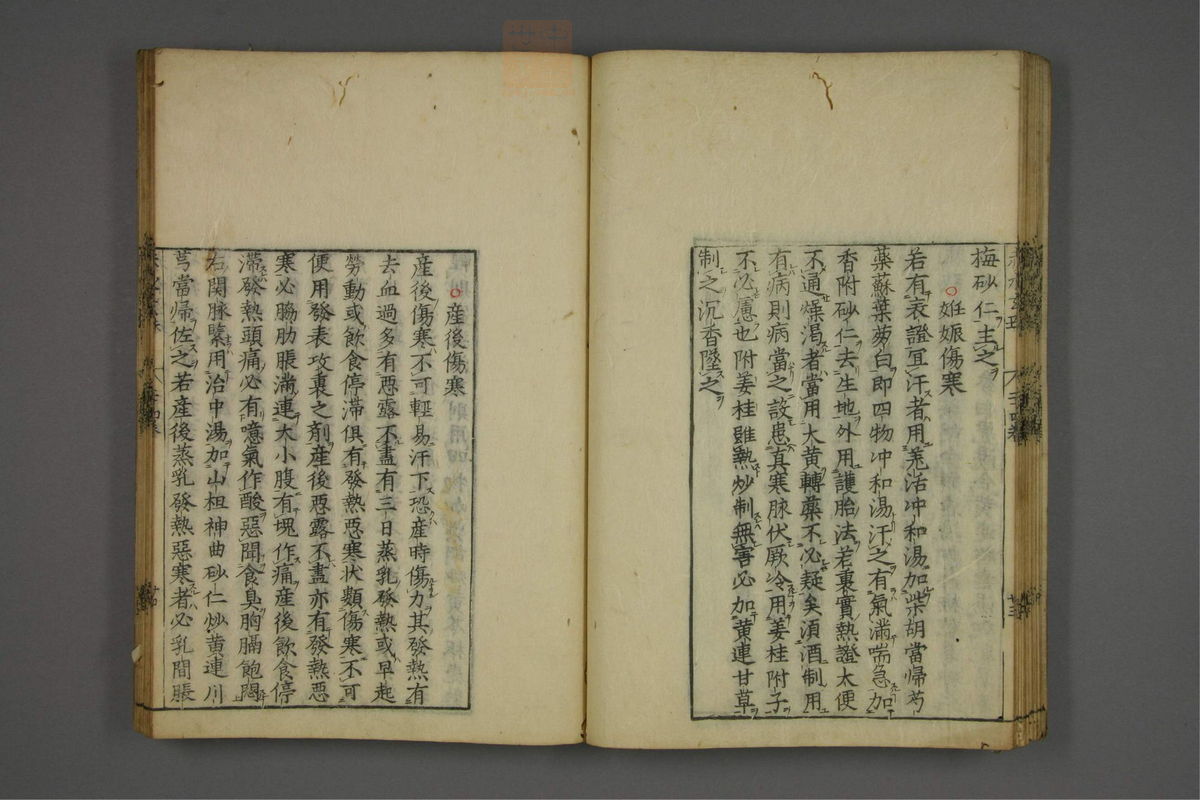 梅砂仁主之
妊娠傷寒
若有表證宜汗者用羗活冲和湯加柴胡當歸芍
藥蘇葉葱白即四物冲和湯汗之有氣滿喘急加
香附砂仁去生地外用護胎法若裏實熱證大便
不通燥渴者當用大黄轉藥不必疑矣須酒制用
有病則病當之設患真寒脉伏厥冷用姜桂附子
不必慮也附姜桂雖熱炒制無害必加黄連甘草
制之沉香墜之
産後傷寒
産後傷寒不可輕易汗下恐産時傷力其發熱有
去血過多有惡露不盡有三日蒸乳發熱或早起
勞動或飲食停滯俱有發熱惡寒状類傷寒不可
便用發表攻裏之剤産後惡露不盡亦有發熱惡
寒必腸肋脹滿連大小腹有塊作痛産後飲食停
滯發熱頭痛必有噫氣作酸惡聞食臭胸膈飽悶
右関脉緊用治中湯加山柤神曲砂仁炒黄連川
芎當帰佐之若産後蒸乳發熱惡寒者必乳間脹